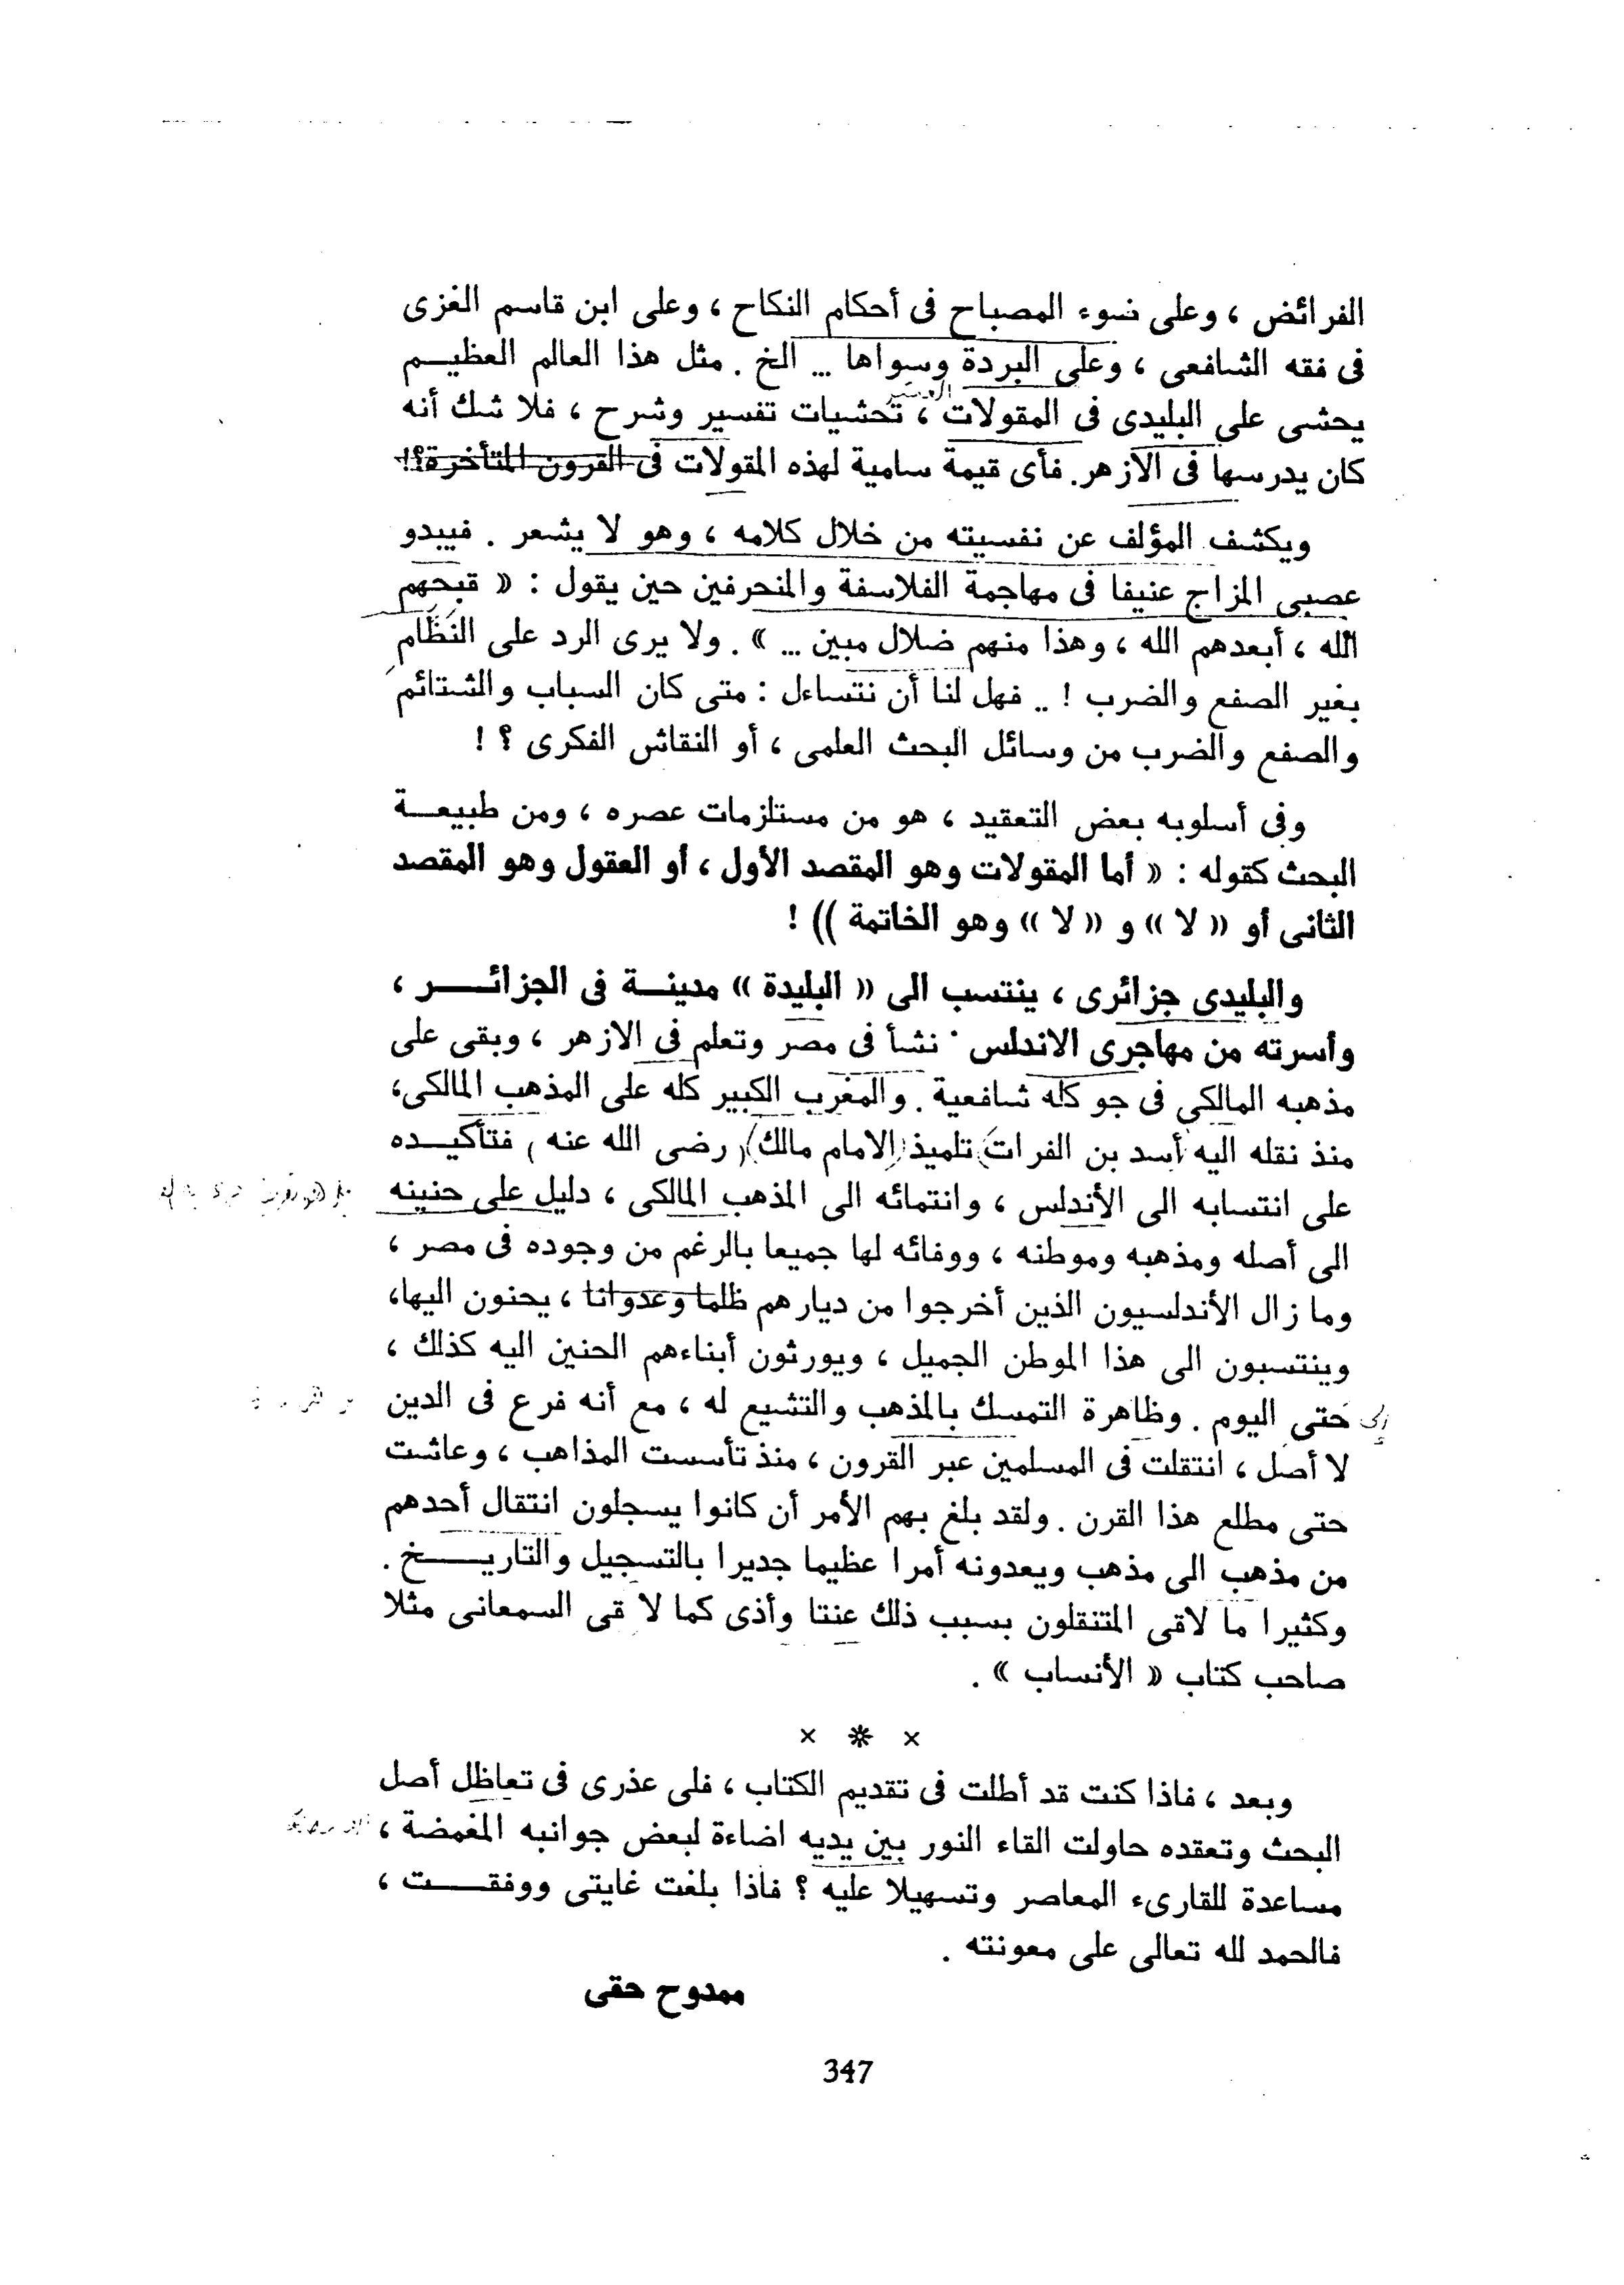 الفرائض ، وعلى ضوء المصباح فى أحكام النكاح ، وعلى ابن قاسم الغزى
فى فقه الشافعى ، وعلى البردة وسواها ... الخ . مثل هذا العالم العظيــم
يحشى على البليدى فى المقولات ، تحشيات تفسير وشرح ، فلا شك أنه
كان يدرسها فى الازهر. فأى قيمة سامية لهذه المقولات فى القرون المتأخرة؟!
ويكشف المؤلف عن نفسيته من خلال كلامه ، وهو لا يشعر . فيبدو
عصبى المزاج عنيفا فى مهاجمة الفلاسفة والمنحرفين حين يقول : « قبحهم
الله ، أبعدهم الله ، وهذا منهم ضلال مبين ... » . ولا يرى الرد على النظام
بغير الصفع والضرب ! .. فهل لنا أن نتساءل : متى كان السباب والشتائم
والصفع والضرب من وسائل البحث العلمى ، أو النقاش الفكرى ؟ !
وفى أسلوبه بعض التعقيد ، هو من مستلزمات عصره ، ومن طبيعــة
البحث كقوله : « أما المقولات وهو المقصد الأول ، أو العقول وهو المقصد
الثانى أو « لا » و « لا » وهو الخاتمة )) !
والبليدى جزائرى ، ينتسب الى « البليدة » مدينــة فى الجزائــــر ،
وأسرته من مهاجرى الاندلس . نشأ فى مصر وتعلم فى الازهر ، وبقى على
مذهبه المالكى فى جو كله شافعية . والمغرب الكبير كله على المذهب المالكى،
منذ نقله اليه أسد بن الفرات تلميذ الامام مالك (رضى الله عنه ) فتأكيــده
على انتسابه الى الأندلس ، وانتمائه الى المذهب المالكى ، دليل على حنينه
الى أصله ومذهبه وموطنه ، ووفائه لها جميعا بالرغم من وجوده فى مصر ،
وما زال الأندلسيون الذين أخرجوا من ديارهم ظلما وعدوانا ، يحنون اليها،
وينتسبون الى هذا الموطن الجميل ، ويورثون أبناءهم الحنين اليه كذلك ،
حتى اليوم . وظاهرة التمسك بالمذهب والتشيع له ، مع أنه فرع فى الدين
لا أصل ، انتقلت فى المسلمين عبر القرون ، منذ تأسست المذاهب ، وعاشت
حتى مطلع هذا القرن . ولقد بلغ بهم الأمر أن كانوا يسجلون انتقال أحدهم
من مذهب الى مذهب ويعدونه أمرا عظيما جديرا بالتسجيل والتاريـــــخ .
وكثيرا ما لاقى المتنقلون بسبب ذلك عنتا وأذى كما لاقى السمعانى مثلا
صاحب كتاب « الأنساب » .
× * ×
وبعد ، فاذا كنت قد أطلت فى تقديم الكتاب ، فلى عذرى فى تعاظل أصل
البحث وتعقده حاولت القاء النور بين يديه اضاءة لبعض جوانبه المغمضة ،
مساعدة للقارىء المعاصر وتسهيلا عليه ؟ فاذا بلغت غايتى ووفقــــت ،
فالحمد لله تعالى على معونته .
ممدوح حقى
347